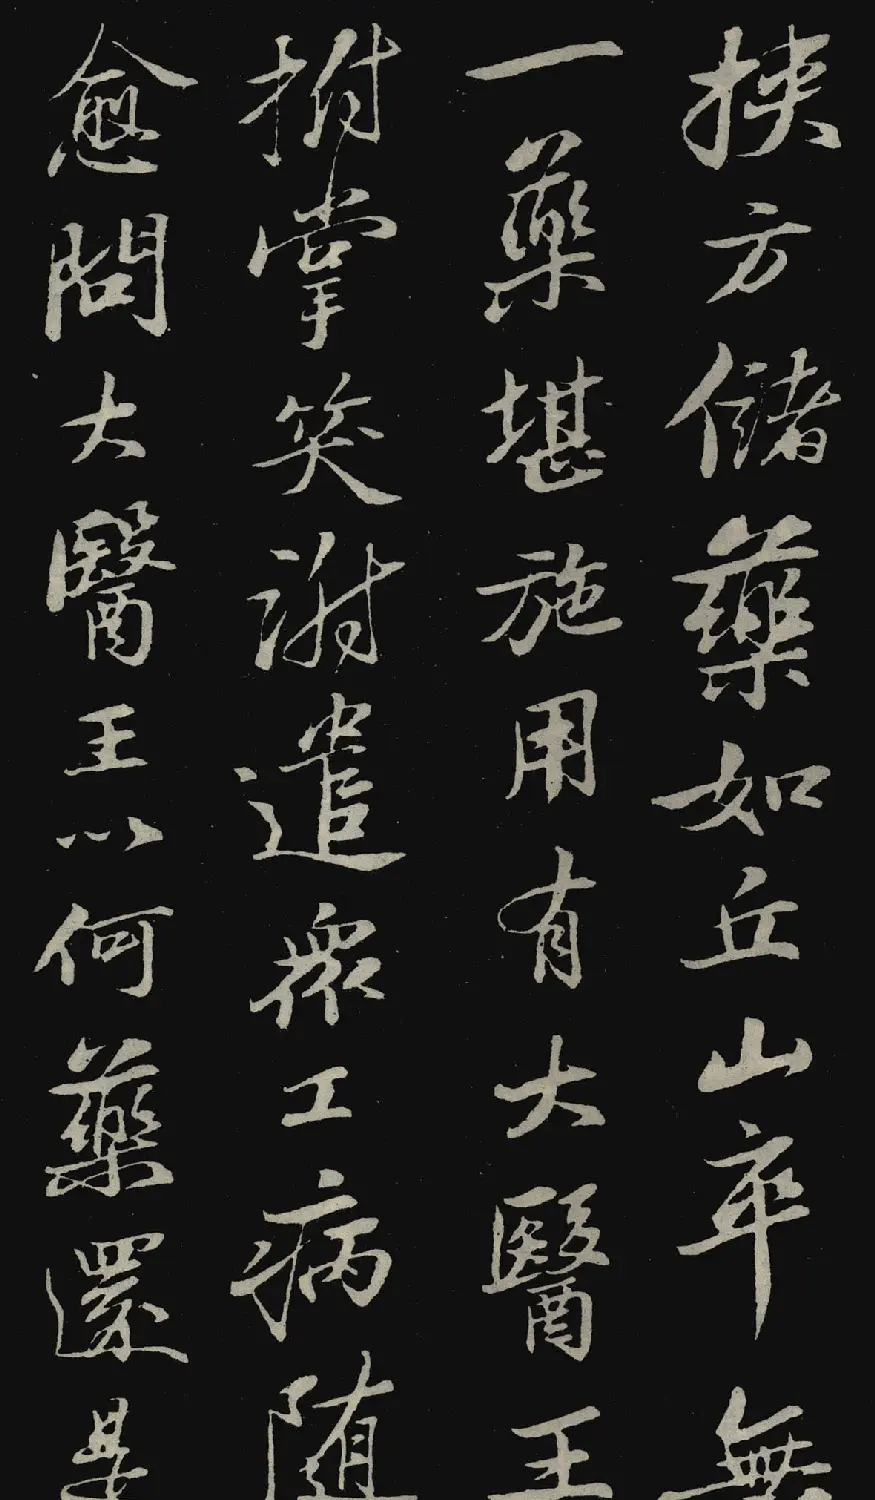 挾方儲藥如丘山卒無
一藥堪施用有大醫王
拊掌笑謝遣衆工病随
愈問大醫王以何藥還是